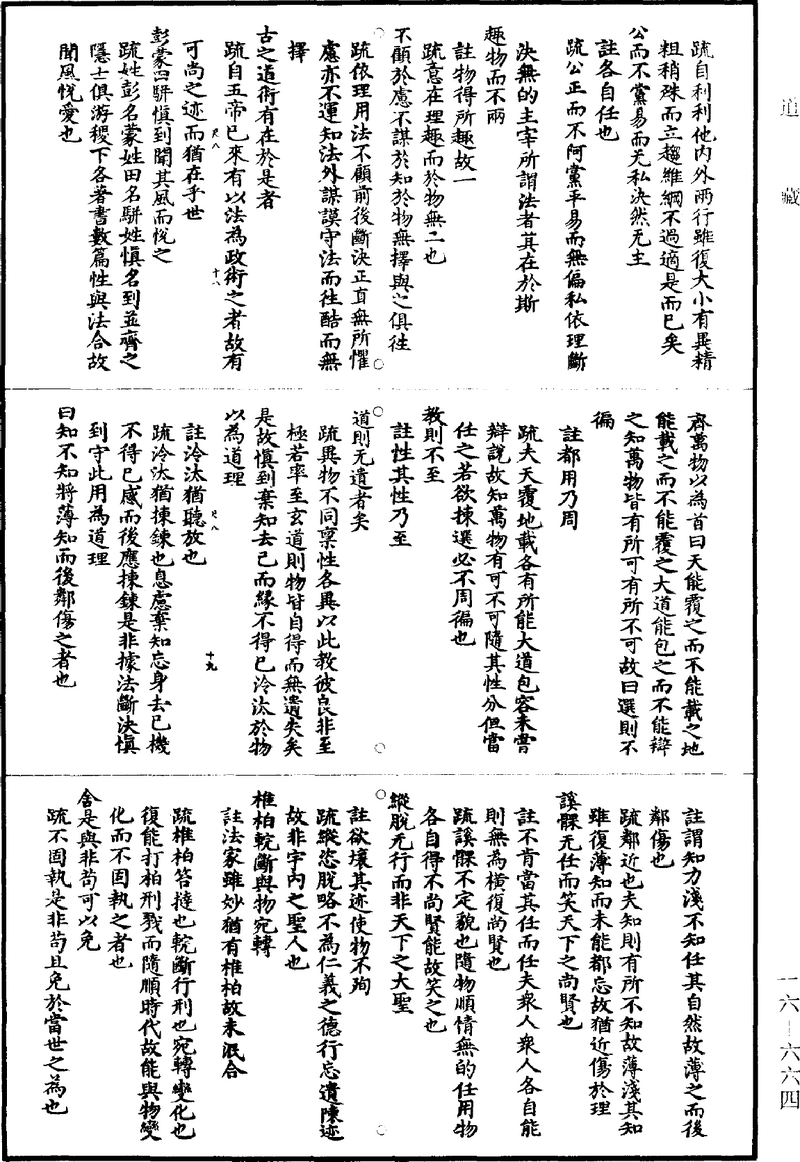 道藏
疏自利利他內外兩行雖復大小有異精
粗稍殊而立趨維綱不過適是而已矣
公而不黨易而无私決然无主
註各自任也
疏公正而不阿黨平易而無偏私依理斷
決無的主宰所謂法者其在於斯
趣物而不兩
註物得所趣故一
疏意在理趣而於物無二也
不顧於慮不謀於知於物無擇與之俱往
疏依理用法不顧前後斷決正直無所懼
慮亦不運知法外謀謨守法而往酷而無
擇
古之道術有在於是者
疏自五帝已來有以法為政術之者故有
可尚之迹而猶在乎世
彭蒙田駢慎到聞其風而悅之
疏姓彭名蒙姓田名駢姓慎名到並齊之
隱士俱游稷下各著書數篇性與法合故
聞風悅愛也
尺八
十八
齊萬物以為首曰天能覆之而不能載之地
能載之而不能覆之大道能包之而不能辯
之知萬物皆有所可有所不可故曰選則不
徧
註都用乃周
疏夫天覆地載各有所能大道包容未嘗
辯說故知萬物有可不可隨其性分但當
任之若欲揀選必不周徧也
教則不至
註性其性乃至
道則无遺者矣
疏異物不同稟性各異以此教彼良非至
極若率至玄道則物皆自得而無遺失矣
是故慎到棄知去己而緣不得已泠汰於物
以為道理
註泠汰猶聽放也
疏泠汰猶揀鍊也息慮棄知忘身去己機
不得已感而後應揀鍊是非據法斷決慎
到守此用為道理
曰知不知將薄知而後鄰傷之者也
尺八
十九
註謂知力淺不知任其自然故薄之而後
鄰傷也
疏鄰近也夫知則有所不知故薄淺其知
雖復薄知而未能都忘故猶近傷於理
謑髁无任而笑天下之尚賢也
註不肯當其任而任夫衆人衆人各自能
則無為橫復尚賢也
疏謑髁不定貌也隨物順情無的任用物
各自得不尚賢能故笑之也
縱脫无行而非天下之大聖
註欲壞其迹使物不殉
疏縱恣脫略不為仁義之德行忘遺陳迹
故非宇內之聖人也
椎柏輐斷與物宛轉
註法家雖妙猶有椎柏故未泯合
疏椎柏笞撻也輐斷行刑也宛轉變化也
復能打柏刑戮而隨順時代故能與物變
化而不固執之者也
舍是與非苟可以免
疏不固執是非苟且免於當世之為也
一六—六六四